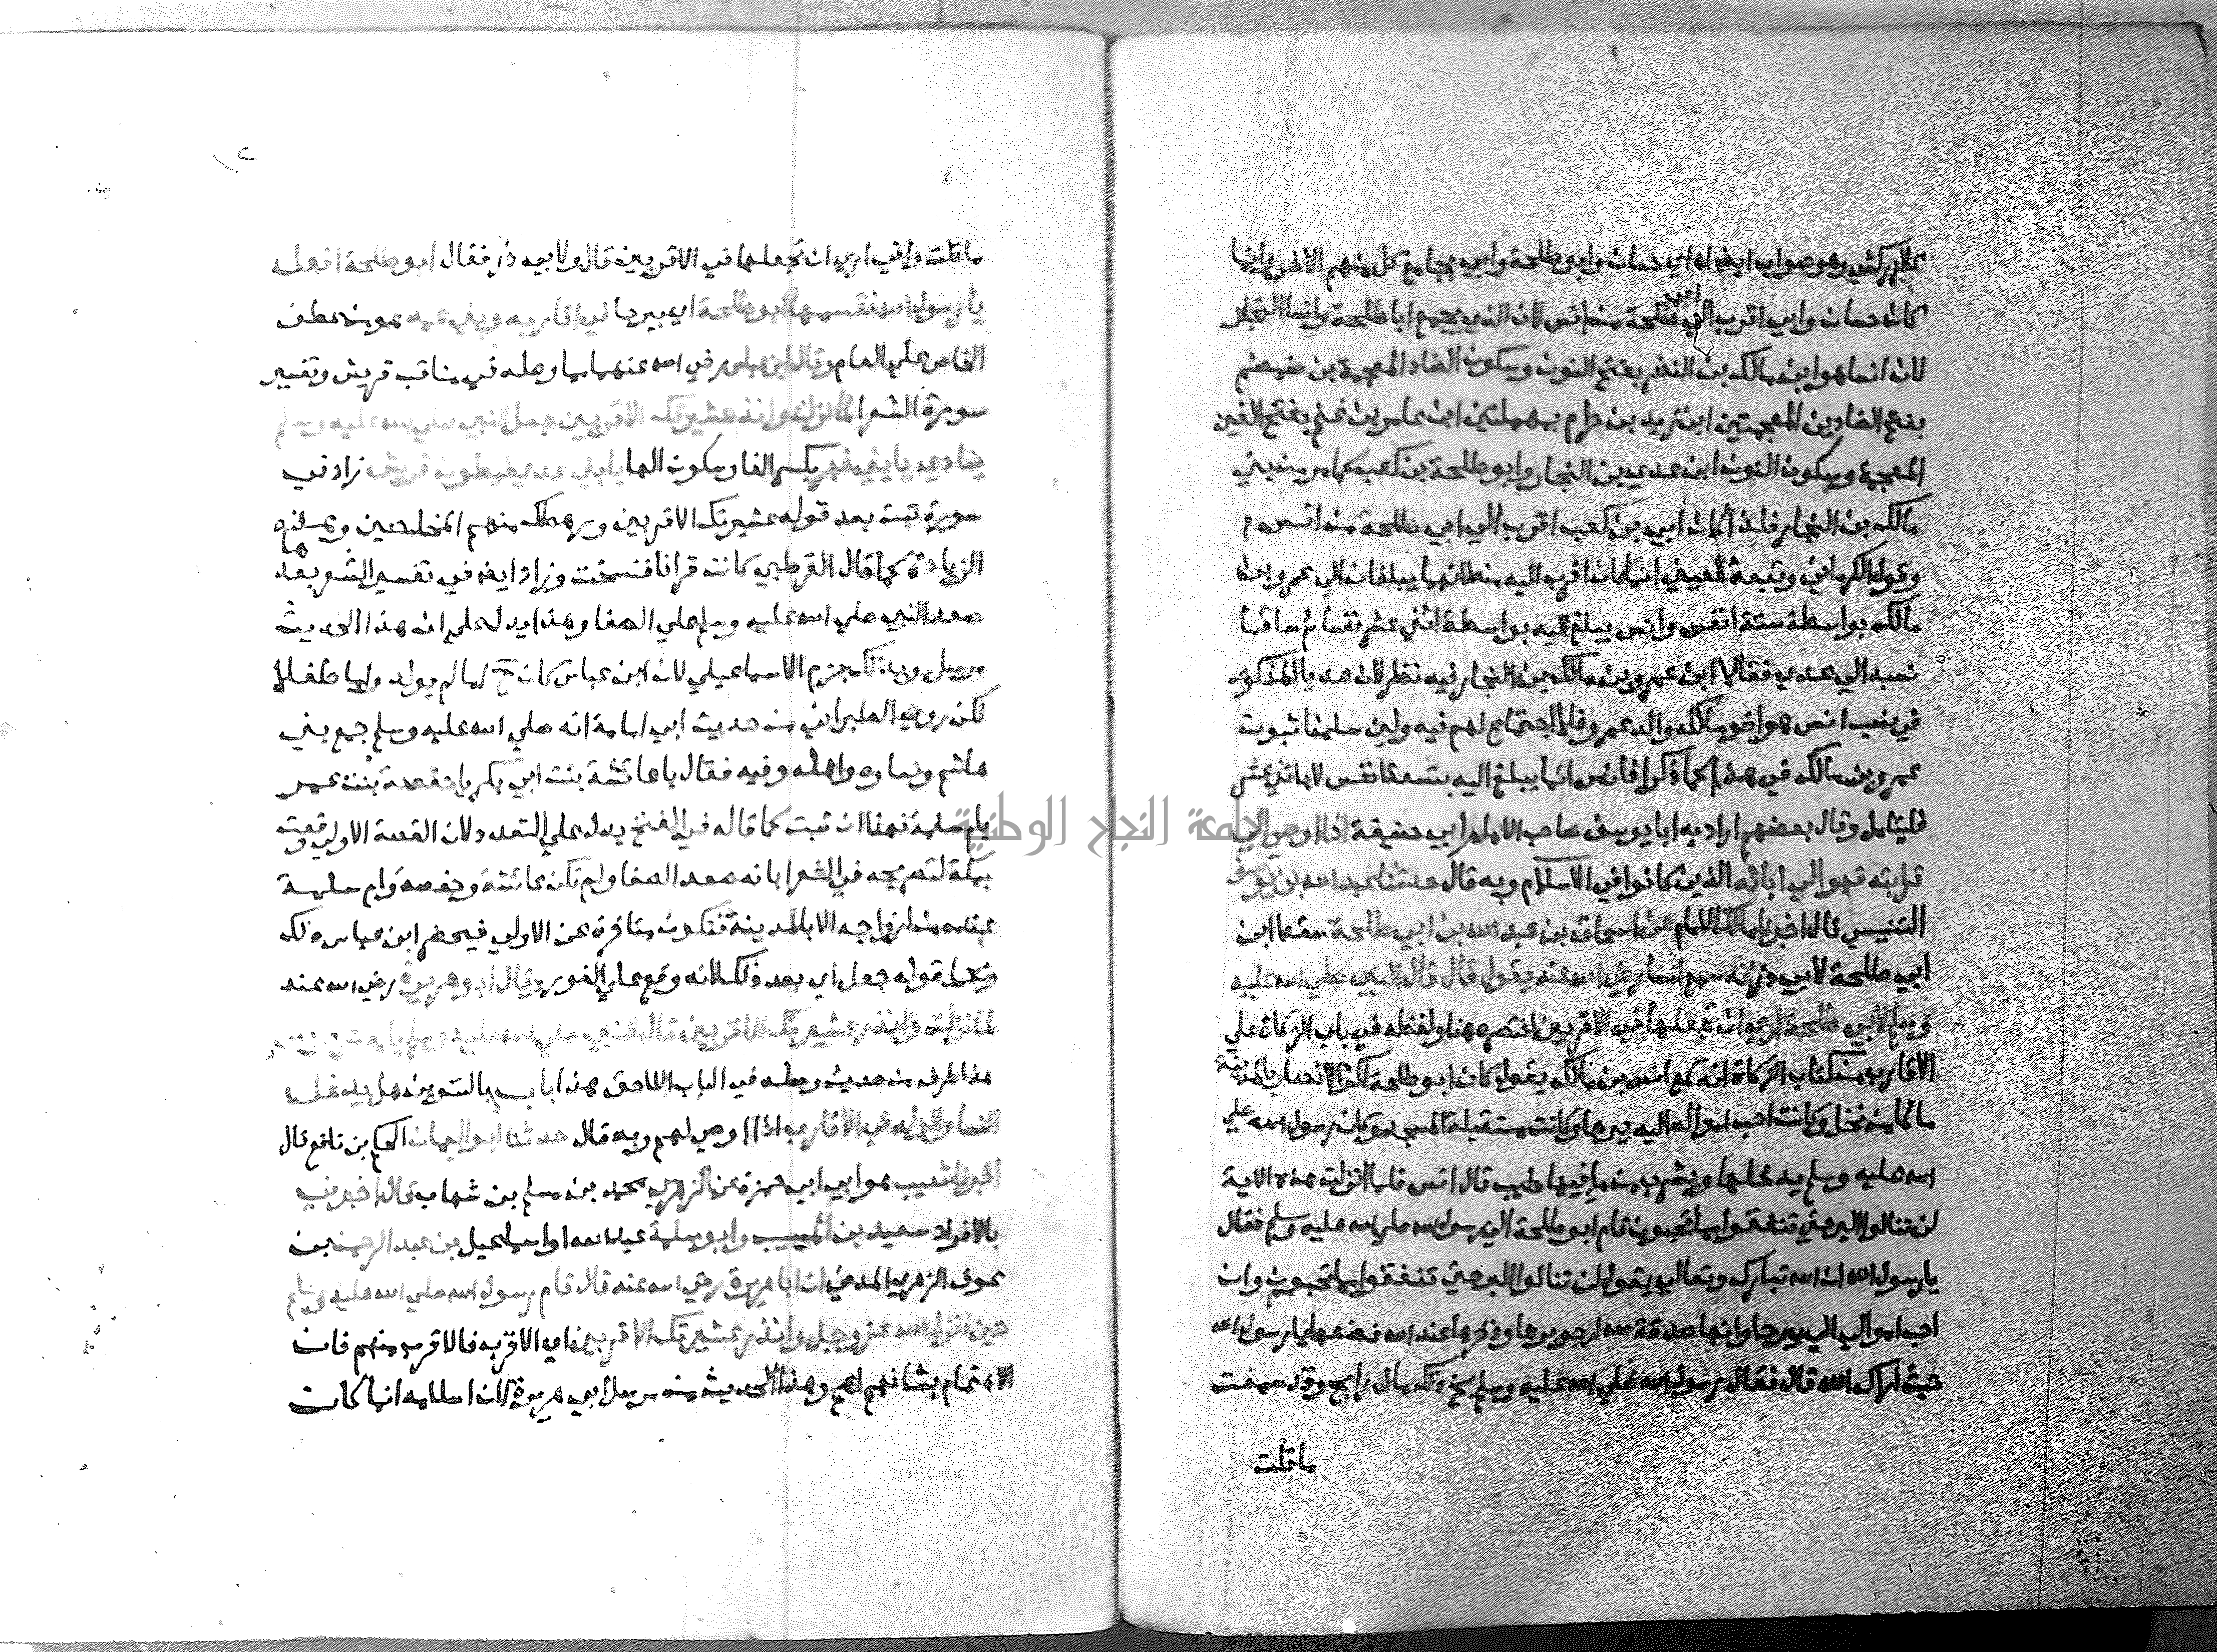 كالزركشي وهو صواب ايضا اي حسان وابو طلحة وابي يجامع كل منهم الاخر وانما
كان حسان وابي اقرب الي ابي طلحة من انس لان الذي يجمع ابا طلحة وانسا النجار
لان انسا هو ابن مالك بن النضر بفتح النون وسكون الضاد المعجمة بن ضمضم
بفتح الضادين المعجمتين ابن زيد بن حرام بمهملتين ابن عامر بن غنم بفتح الغين
المعجمة وسكون النون ابن عدي بن النجار وابو طلحة بن كعب كما مر من بني
مالك بن النجار فلذا كان أبي بن كعب اقرب الي ابي طلحة من انس
وقول الكرماني وتبعه العيني انما كان اقرب اليه منه لانهما يبلغان الي عمرو بن
مالك بواسطة ستة انفس وانس يبلغ اليه بواسطة اثني عشر نفسا ثم ساقا
نسبه الي عدي فقالا ابن عمرو بن مالك بن النجار فيه نظر لان عديا المذكور
في نسب انس هو اخو مالك والد عمرو فلا اجتماع لهم فيه ولين سلمنا ثبوت
عمرو بن مالك في هذا كما ذكرا فانس انما يبلغ اليه بتسعة انفس لا باثني عشر
فليتامل وقال بعضهم اراد به ابا يوسف صاحب الامام ابي حنيفة اذا اوصي الي
جامعة النجاح الوطنية
قرابته فهو الي ابائه الذين كانوا في الاسلام وبه قال حدثنا عبد الله بن يوسف
التنيسي قال اخبرنا مالك الامام عن اسحاق بن عبد الله بن ابي طلحة سقط ابن
ابي طلحة لابي ذر انه سمع انسا رضي الله عنه يقول قال قال النبي صلي الله عليه
وسلم لابي طلحة اري ان تجعلها في الاقربين اختصره هنا ولفظه في باب الزكاة علي
الاقارب من كتاب الزكاة انه سمع انس بن مالك يقول كان ابو طلحة اكثر الانصار بالمدينة
مالا من نخل وكانت احب امواله اليه بيرحا وكانت مستقبلة المسجد وكان رسول الله صلي
الله عليه وسلم يدخلها ويشرب من ما فيها طيب قال انس فلما انزلت هذه الاية
لن تنالوا البر حتي تنفقوا مما تحبون قام ابو طلحة الي رسول الله صلي الله عليه وسلم فقال
يا رسول الله ان الله تبارك وتعالي يقول لن تنالوا البر حتي تنفقوا مما تحبون وان
احب اموالي الي بيرحا وانها صدقة لله ارجو برها وذخرها عند الله فضعها يا رسول الله
حيث اراك الله قال فقال رسول الله صلي الله عليه وسلم بخ ذلك مال رابح وقد سمعت
ما قلت
١٢
ما قلت واني اري ان تجعلها في الاقربين قال ولابي ذر فقال ابو طلحة افعل
يا رسول الله فقسمها ابو طلحة اي بيرحا في اقاربه وبني عمه هو من عطف
الخاص علي العام وقال ابن عباس رضي الله عنهما مما وصله في مناقب قريش وتفسير
سورة الشعرا لما نزلت وانذر عشيرتك الاقربين جعل النبي صلي الله عليه وسلم
ينادي يا بني فهر بكسر الفا وسكون الها يا بني عدي لبطون قريش زاد في
سورة تبت بعد قوله عشيرتك الاقربين ورهطك منهم المخلصين وهذه
الزيادة كما قال القرطبي كانت قرانا فنسخت وزاد ايضا في تفسير الشعرا بعدها
صعد النبي صلي الله عليه وسلم علي الصفا وهذا يدل علي ان هذا الحديث
مرسل وبذلك جزم الاسماعيلي لان ابن عباس كان ح اما لم يولد واما طفلا
لكن روي الطبراني من حديث ابي امامة انه صلي الله عليه وسلم جمع بني
هاشم ونساءه واهله وفيه فقال يا عائشة بنت ابي بكر يا حفصة بنت عمر
يا ام سلمة فهذا ان ثبت كما قاله في الفتح يدل علي التعدد لان القصة الاولي وقعت
بمكة لتصريحه في الشعرا بانه صعد الصفا ولم تكن عائشة وحفصة وام سلمة
عنده من ازواجه الا بالمدينة فتكون متاخرة عن الاولي فيحضر ابن عباس ذلك
ويحمل قوله جعل اي بعد ذلك لا انه وقع علي الفور وقال ابو هريرة رضي الله عنه
لما نزلت وانذر عشيرتك الاقربين قال النبي صلي الله عليه وسلم يا معشر قريش
هذا طرف من حديث وصله في الباب اللاحق هذا باب بالتنوين هل يدخل
النسا والولد في الاقارب اذا اوصي لهم وبه قال حدثنا ابو اليمان الحكم بن نافع قال
اخبرنا شعيب هو ابن ابي حمزة عن الزهري محمد بن مسلم بن شهاب قال اخبرني
بالافراد سعيد بن المسيب وابو سلمة عبد الله او اسماعيل بن عبد الرحمن بن
عوف الزهري المدني ان ابا هريرة رضي الله عنه قال قام رسول الله صلي الله عليه وسلم
حين انزل الله عز وجل وانذر عشيرتك الاقربين اي الاقرب فالاقرب منهم فان
الاهتمام بشانهم اهم وهذا الحديث من مرسل ابي هريرة لان اسلامه انما كان